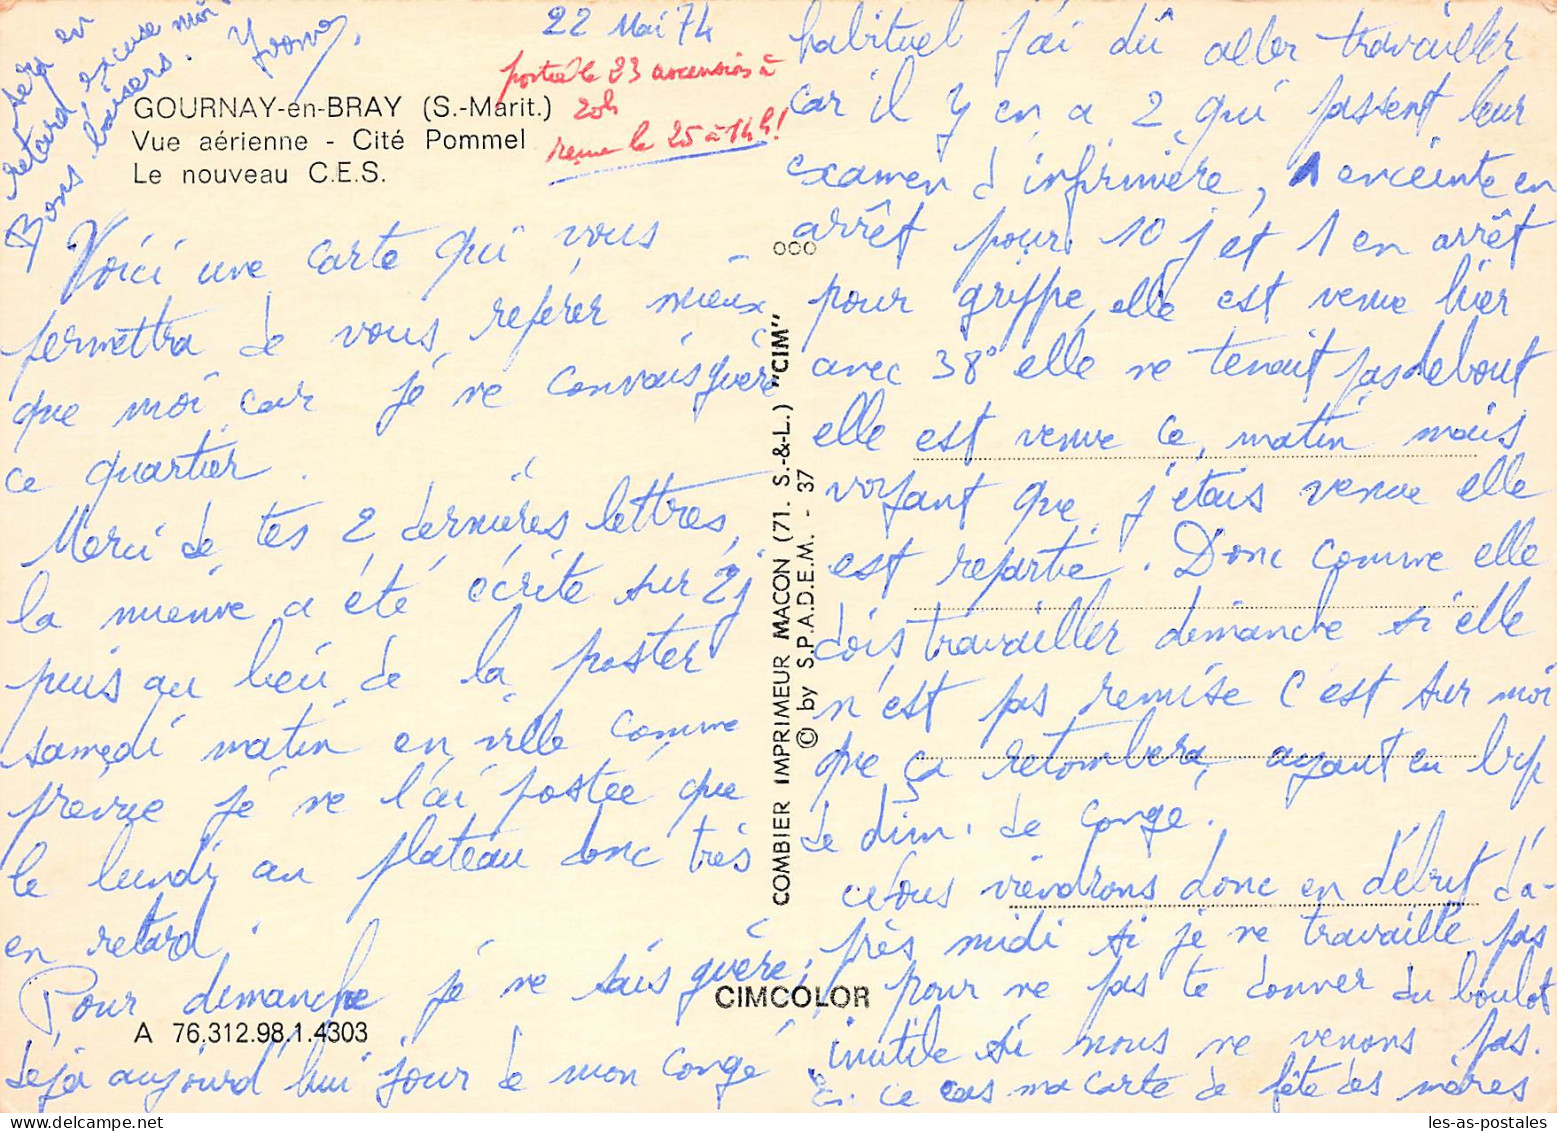 22 Mai 74
postée le 23 ascension à
20h
reçue le 25 à 14h!
GOURNAY-en-BRAY (S.-Marit.)
Vue aérienne - Cité Pommel
Le nouveau C.E.S.
Voici une carte qui vous
permettra de vous repérer mieux
que moi car je ne connais guère
ce quartier.
Merci de tes 2 dernières lettres,
la mienne a été écrite sur 2j
puis au lieu de la poster
samedi matin en ville comme
prévue je ne l'ai postée que
le lundi au plateau donc très
en retard.
Pour dimanche je ne sais guère,
déjà aujourd'hui jour de mon congé
A 76.312.98.1.4303
COMBIER IMPRIMEUR MACON (71. S.-&-L.) "CIM"
© by S.P.A.D.E.M. - 37
CIMCOLOR
habituel j'ai dû aller travailler
car il y en a 2 qui passent leur
examen d'infirmière, 1 enceinte en
arrêt pour 10 j et 1 en arrêt
pour grippe, elle est venue hier
avec 38° elle ne tenait pas debout
elle est venue ce matin mais
voyant que j'étais venue elle
est repartie. Donc comme elle
dois travailler dimanche si elle
n'est pas remise c'est sur moi
que ça retombera, ayant eu
de dim. de congé.
Nous viendrons donc en début d'a-
près midi si je ne travaille pas
pour ne pas te donner du boulot
inutile si nous ne venons pas.
En ce cas ma carte de fête des mères
sera en
retard excuse moi
Bons baisers. Yvonne,
les-as-postales